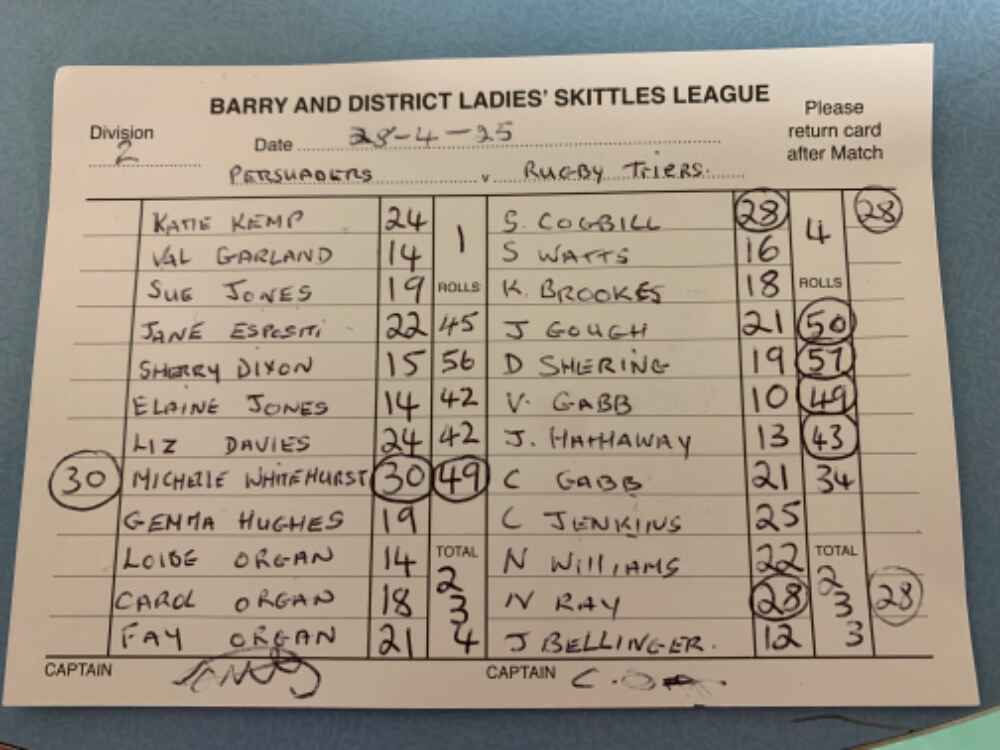 BARRY AND DISTRICT LADIES' SKITTLES LEAGUE
Please return card after Match
Division 2
Date 28-4-25
PERSUADERS v RUGBY TRIERS.
KATIE KEMP 24 1 S. COGBILL 28 4 28
VAL GARLAND 14 S WATTS 16
SUE JONES 19 ROLLS K. BROOKES 18 ROLLS
JANE ESPOSITI 22 45 J GOUGH 21 50
SHERRY DIXON 15 56 D SHERING 19 57
ELAINE JONES 14 42 V. GABB 10 49
LIZ DAVIES 24 42 J. HATHAWAY 13 43
30 MICHELLE WHITEHURST 30 49 C GABB 21 34
GEMMA HUGHES 19 C JENKINS 25
LOIBE ORGAN 14 TOTAL N WILLIAMS 22 TOTAL
CAROL ORGAN 18 2 3 4 N RAY 28 2 3 3 28
FAY ORGAN 21 J BELLINGER. 12
CAPTAIN CAPTAIN